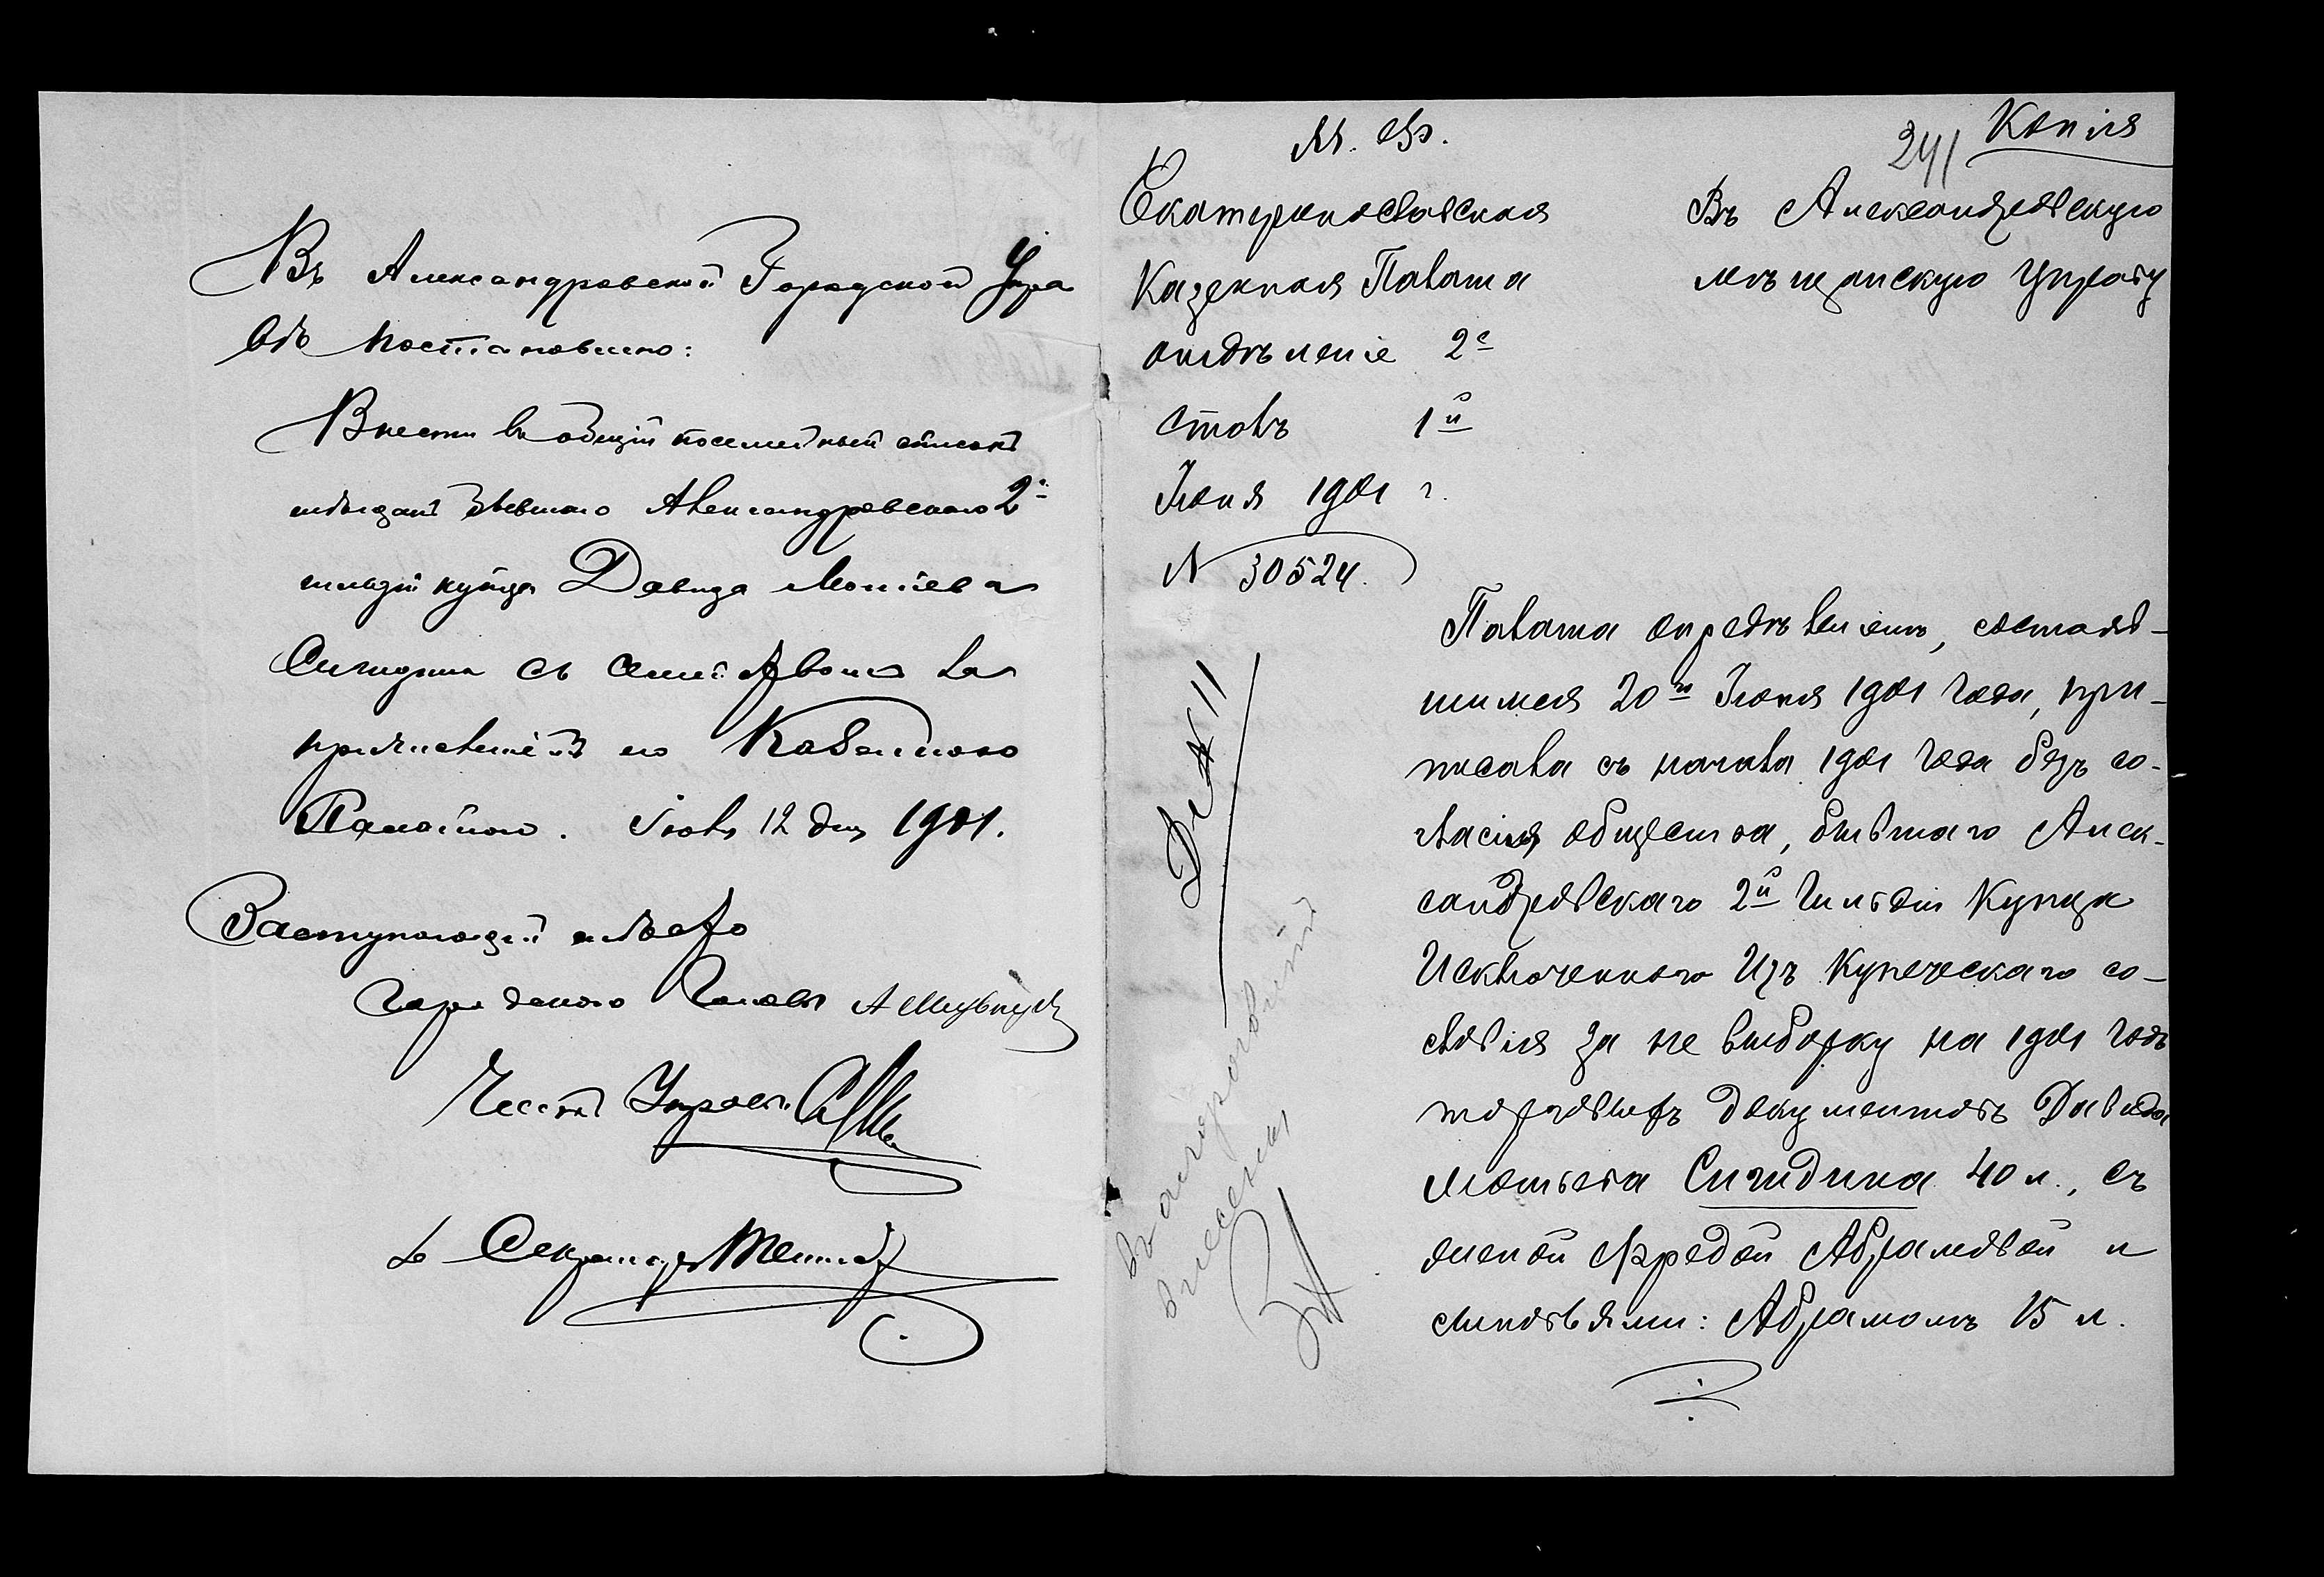 Въ Александровской Городской Упра
вѣ постановлено:
Внести въ общій посемейный списокъ
мѣщанъ бывшаго Александровскаго 2й
гильдіи купца Давида Мошіева
Сигидина съ семействомъ за
причисленіемъ его Казенною
Палатою. Іюля 12 дня 1901.
Заступающій мѣсто
Городского Головы
Членъ Управы
За Секретаря
М. Ф.
Екатеринославская
Казенная Палата
отдѣленіе 2е
столъ 1й
Іюня 1901 г.
N 30524.
К N 11
Въ алфавитъ
внесенъ
241
Копія
Въ Александровскую
мѣщанскую управу
Палата опредѣленіемъ, состояв-
шимся 20го Іюня 1901 года, при-
писала съ начала 1901 года безъ со-
гласія общества, бывшаго Алек-
сандровскаго 2й гильдіи Купца
Исключеннаго Изъ Купеческаго со-
словія за не выборку на 1901 годъ
торговыхъ документовъ Давида
Мошьева Сигидина 40 л., съ
женой Фредой Абрамовой и
сыновьями: Абрамомъ 15 л.